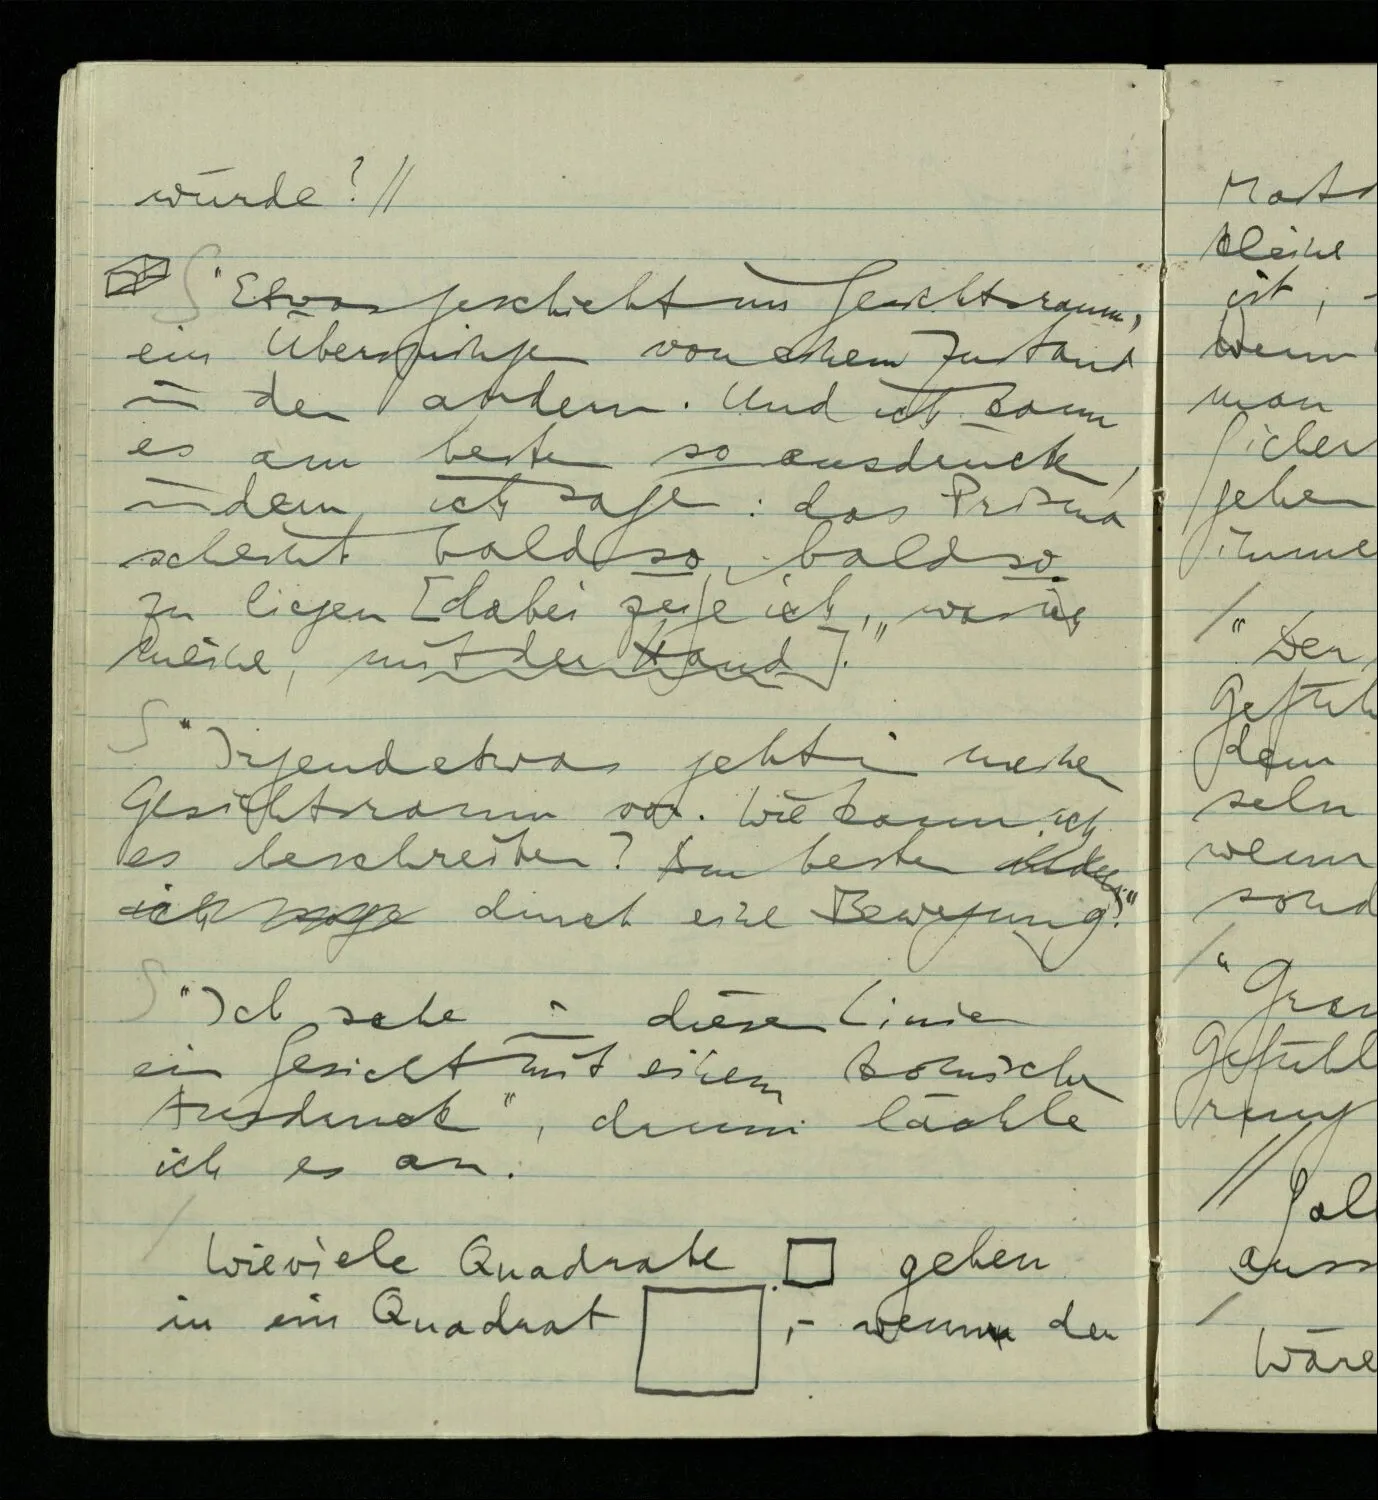 würde? //
∫ "Etwas geschieht im Gesichtsraum,
ein Überspringen von einem Zustand
in den andern. Und ich kann
es am besten so ausdrücken,
indem ich sage: das Prisma
scheint bald so, bald so
zu liegen [dabei zeige ich, was ich
meine, mit der Hand]."
∫ "Irgendetwas geht in meinem
Gesichtsraum vor. Wie kann ich
es beschreiben? Am besten indem
ich sage durch eine Bewegung."
∫ "Ich sehe in diesen Linien
ein Gesicht mit einem komischen
Ausdruck", drum lächle
ich es an.
/
Wieviele Quadrate □ gehen
in ein Quadrat □, – wenn der
Kleine
ist,
Wenn
man
sicher
gehen
/
"Der
dem
wenn
/
"
//
/
Wäre